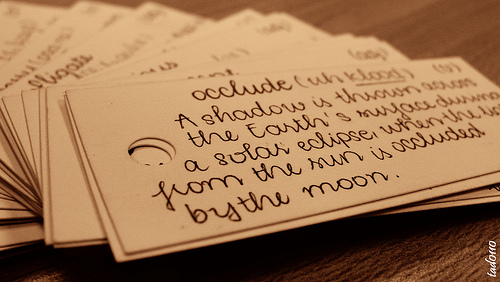 occlude (uh klood) (v)
A shadow is thrown across
the Earth's surface during
a solar eclipse, when the
from the sun is occluded
by the moon.
tadollo